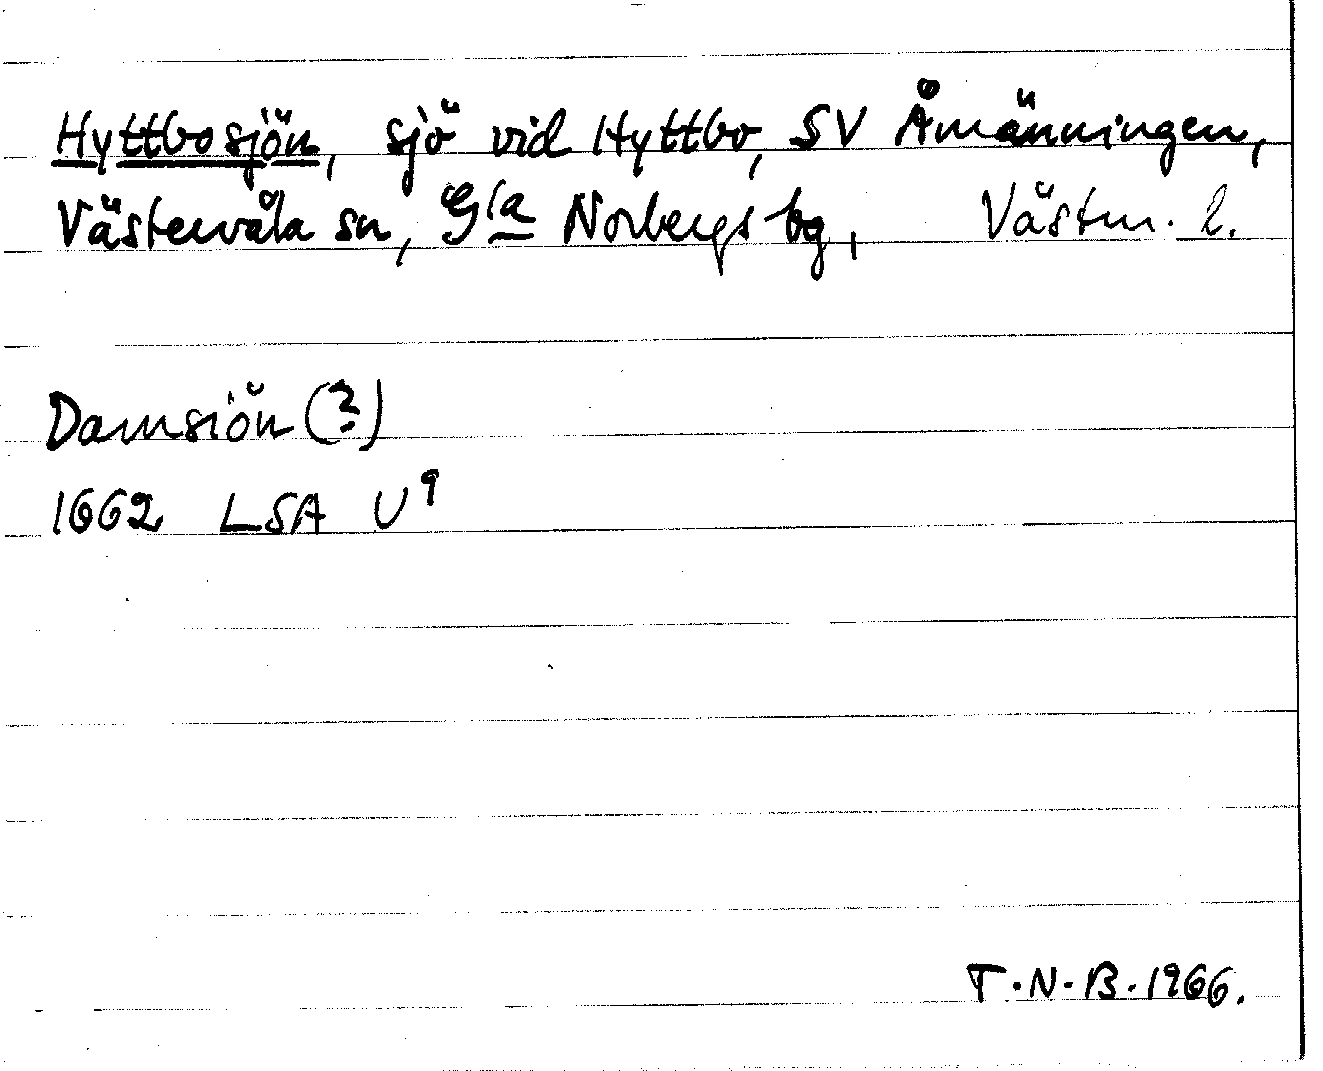 Hyttbosjön, sjö vid Hyttbo, SV Åmänningen,
Västervåla sn, Gla Norbergs bg, Västm. l.
Damsiön (?)
1662 LSA U⁹
T.N.B. 1966.